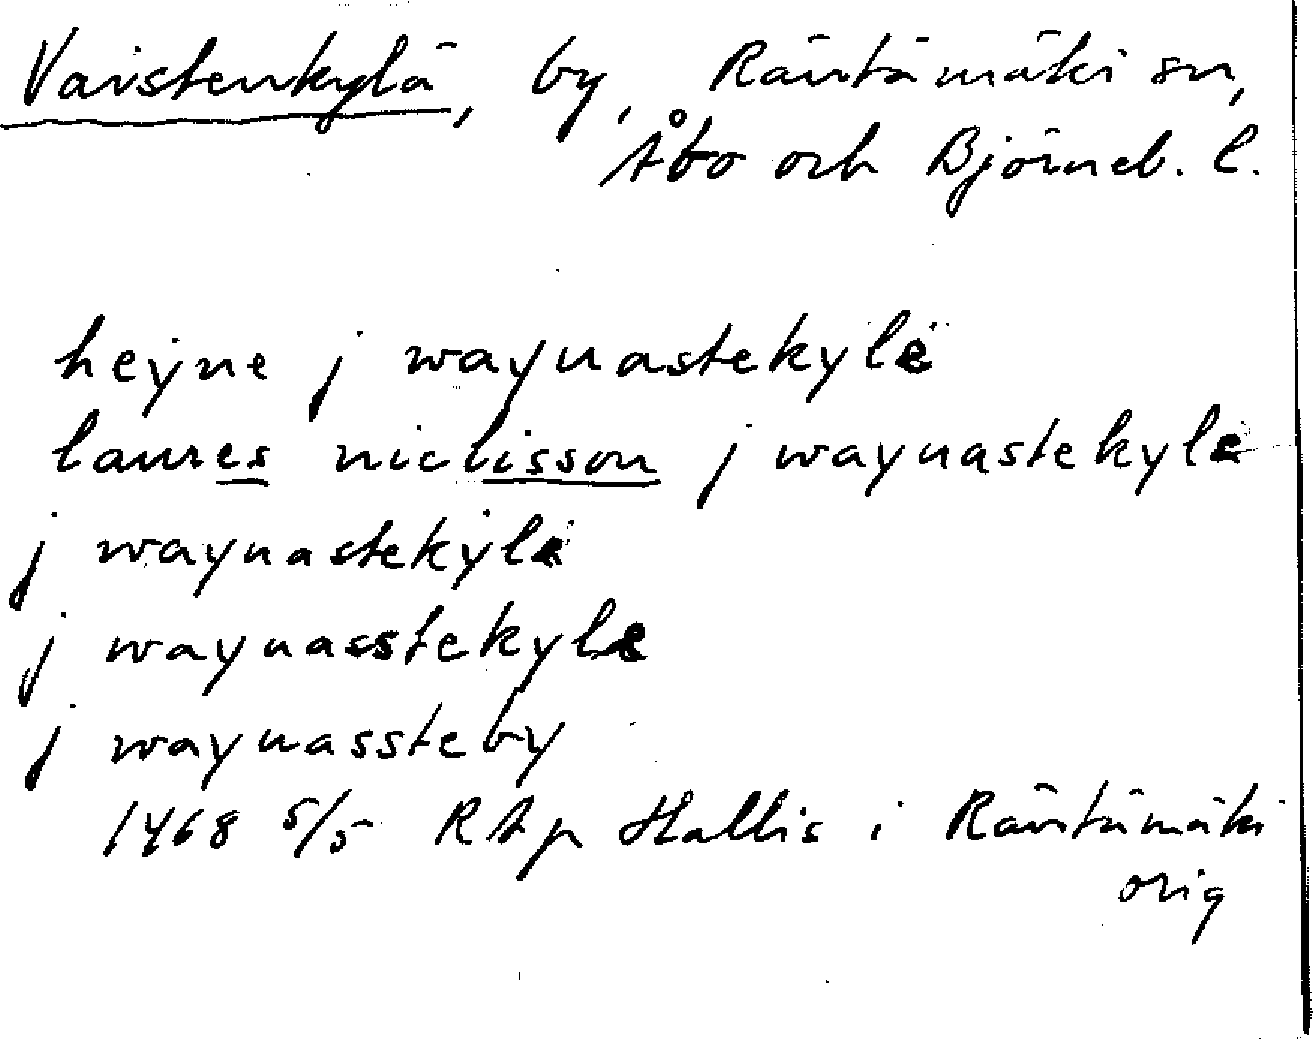 Vaistenkylä, by, Räntämäki sn,
Åbo och Björneb. l.
heyne j waynastekylè
laures niclisson j waynastekyle
j waynastekylè
j waynasstekyle
j waynassteby
1468 5/5 RAp Hallis i Räntämäki
orig